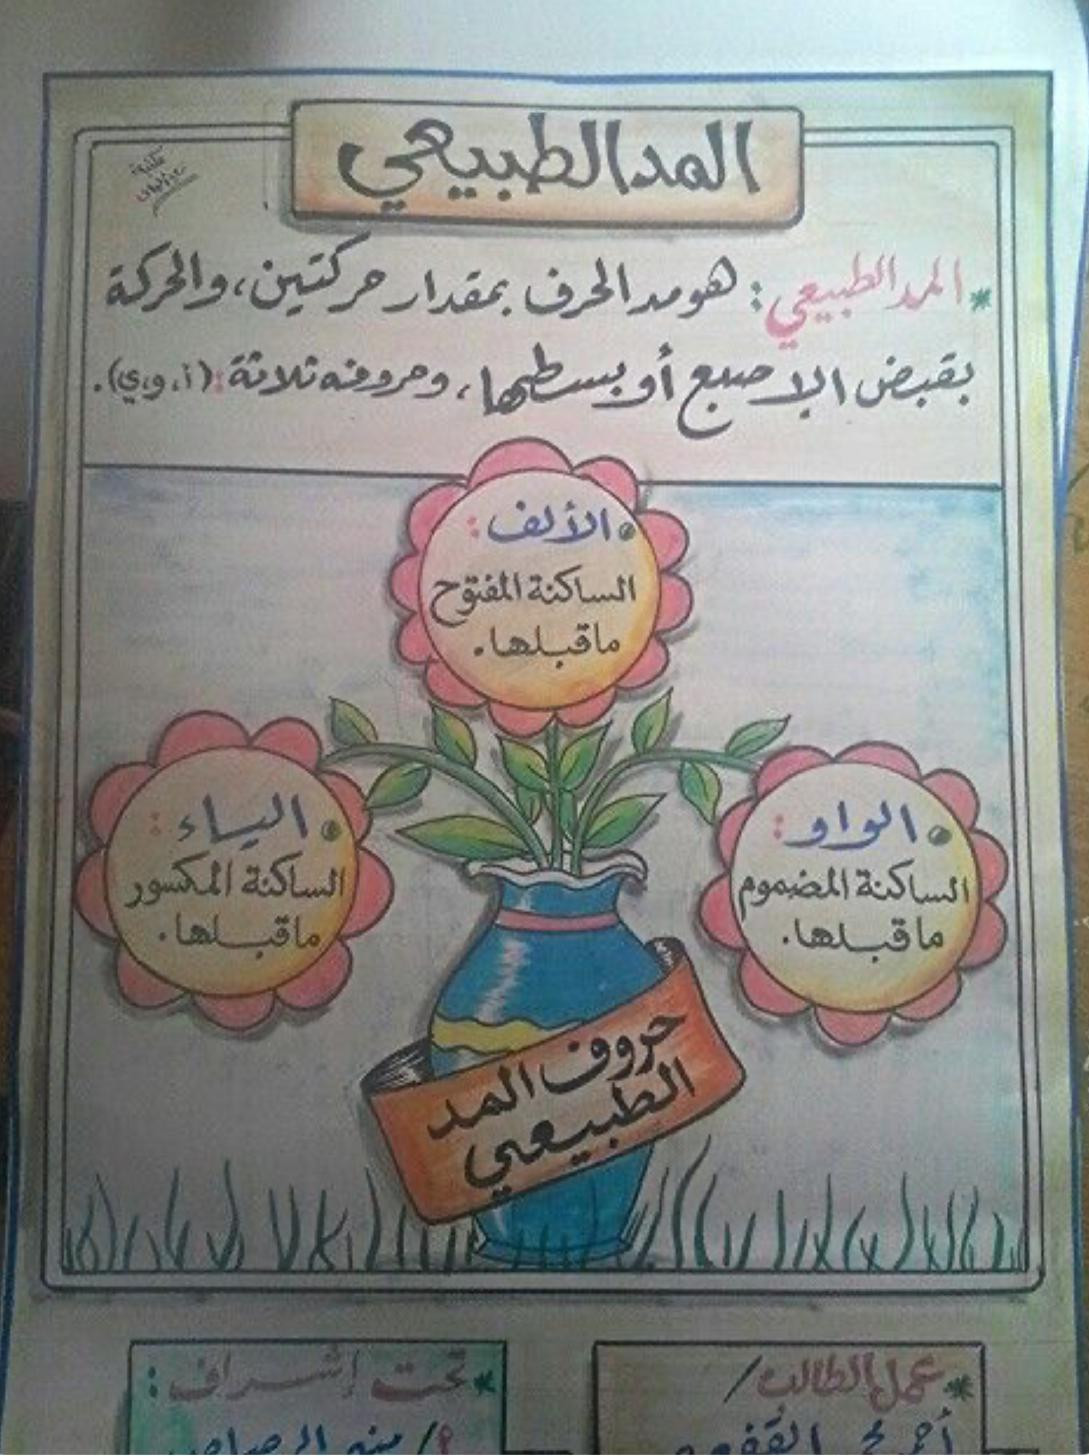 المد الطبيعي
مكتبة
* المد الطبيعي: هو مد الحرف بمقدار حركتين، والحركة
بقبض الإصبع أو بسطها، وحروفه ثلاثة: (أ، و، ي).
• الألف:
الساكنة المفتوح
ما قبلها.
• الواو:
الساكنة المضموم
ما قبلها.
• الياء:
الساكنة المكسور
ما قبلها.
حروف المد
الطبيعي
* عمل الطالب/
* تحت إشراف: